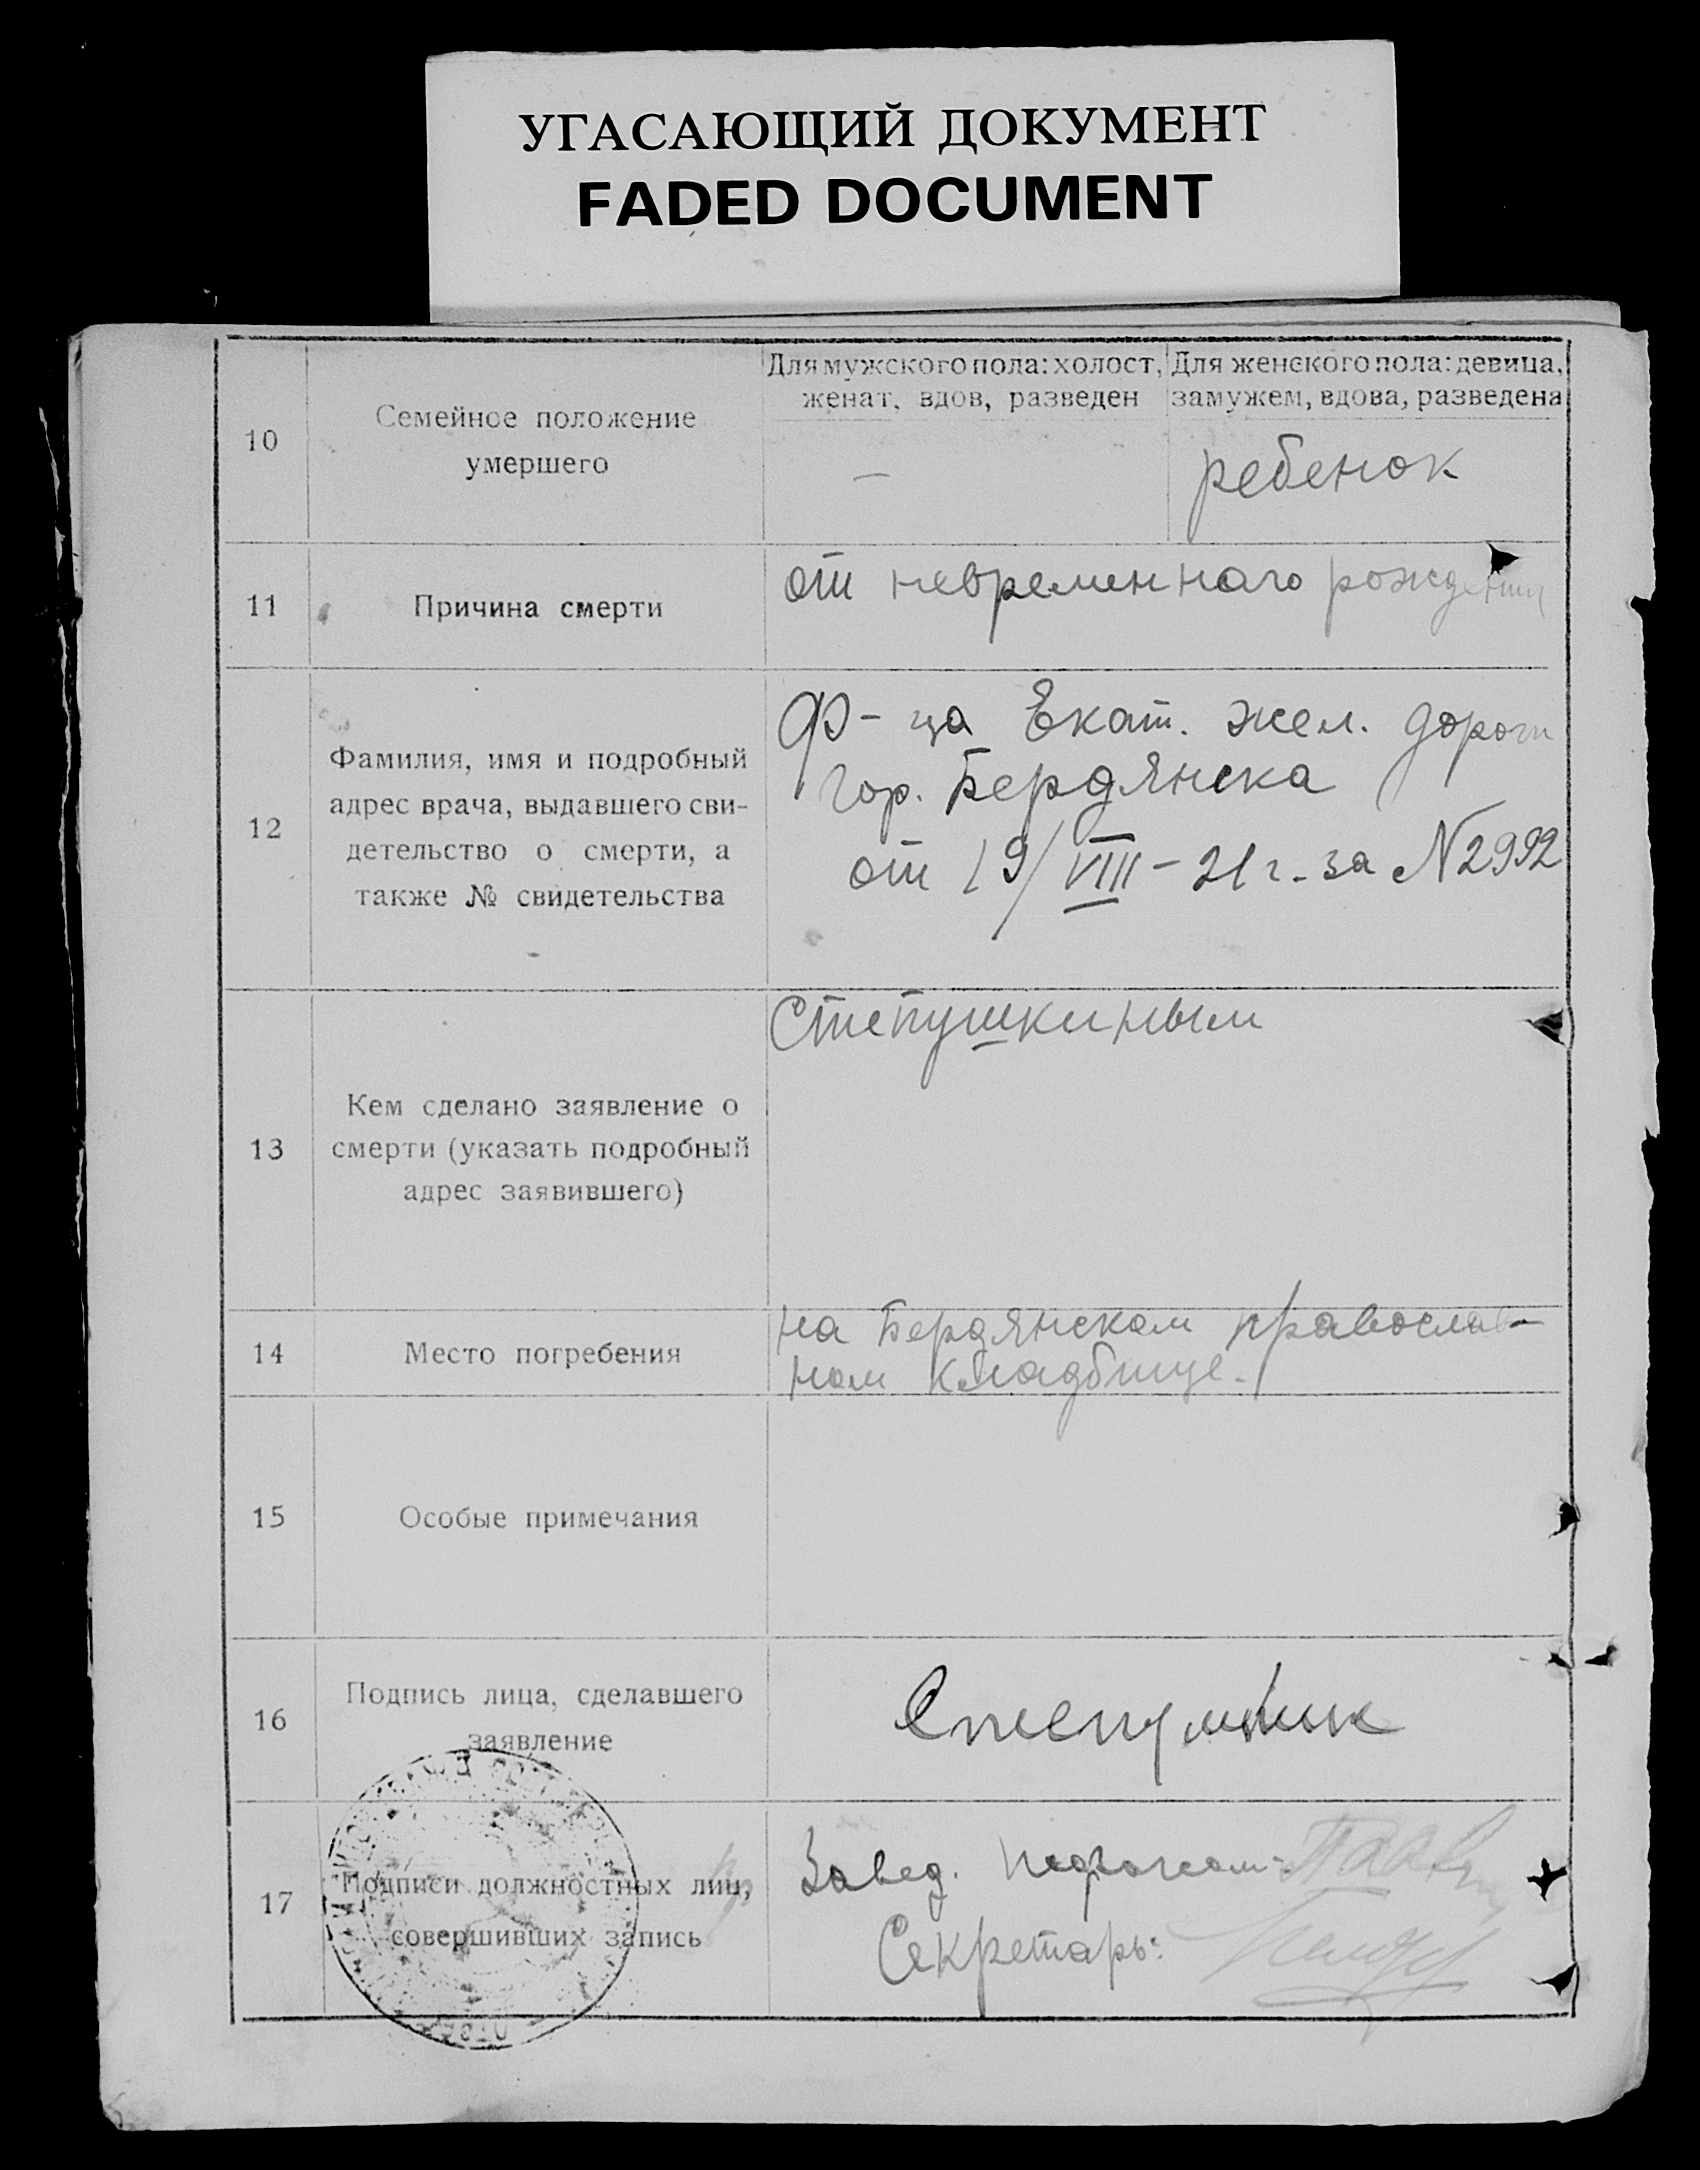 УГАСАЮЩИЙ ДОКУМЕНТ
FADED DOCUMENT
10
Семейное положение
умершего
Для мужского пола: холост,
женат, вдов, разведен
Для женского пола: девица,
замужем, вдова, разведена
—
ребенок
11
Причина смерти
от невременного рождения
12
Фамилия, имя и подробный
адрес врача, выдавшего сви-
детельство о смерти, а
также № свидетельства
Ф-ца Екат. жел. дороги
гор. Бердянска
от 19/VIII-21 г. за №2992
13
Кем сделано заявление о
смерти (указать подробный
адрес заявившего)
Степушкиным
14
Место погребения
на Бердянском православ-
ном кладбище.
15
Особые примечания
16
Подпись лица, сделавшего
заявление
17
Подписи должностных лиц,
совершивших запись
Завед.
Секретарь: